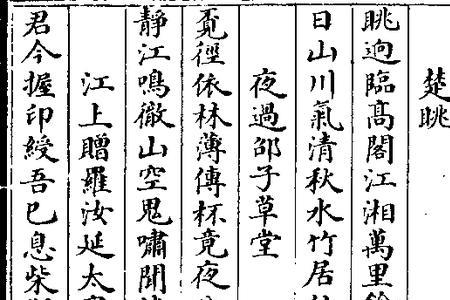 楚眺
眺迥臨髙閣江湘萬里
日山川氣清秋水竹居
夜過邵子草堂
覔徑依林薄傳杯竟夜
靜江鳴徹山空鬼嘯聞
江上贈羅汝延太
君今握印綬吾已息柴